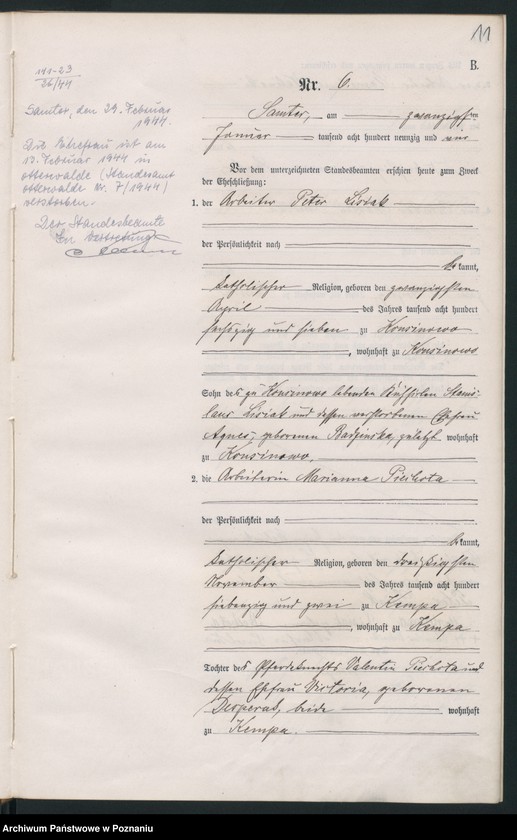 11
B.
Nr. 6.
141-23
26/44
Samter, den 29. Februar
1944.
Die Ehefrau ist am
13. Februar 1944 in
Otterwalde (Standesamt
Otterwalde Nr. 7/1944)
verstorben.
Der Standesbeamte
In Vertretung
Samter, am zwanzigsten
Januar tausend acht hundert neunzig und ein
Vor dem unterzeichneten Standesbeamten erschien heute zum Zweck
der Eheschließung:
1. der Arbeiter Peter Lisiak
der Persönlichkeit nach
bekannt,
katholischer Religion, geboren den zwanzigsten
April des Jahres tausend acht hundert
sechszig und sieben zu Konsinowo
, wohnhaft zu Konsinowo
Sohn des zu Konsinowo lebenden Kuhhirten Stanis-
laus Lisiak und dessen verstorbenen Ehefrau
Agnes, geborenen Radzinska, zuletzt wohnhaft
zu Konsinowo.
2. die Arbeiterin Marianna Piechota
der Persönlichkeit nach
bekannt,
katholischer Religion, geboren den dreißigsten
November des Jahres tausend acht hundert
siebenzig und zwei zu Kempa
, wohnhaft zu Kempa
Tochter des Pferdeknechts Valentin Piechota und
dessen Ehefrau Victoria, geborenen
Desperas, beide wohnhaft
zu Kempa.
Archiwum Państwowe w Poznaniu